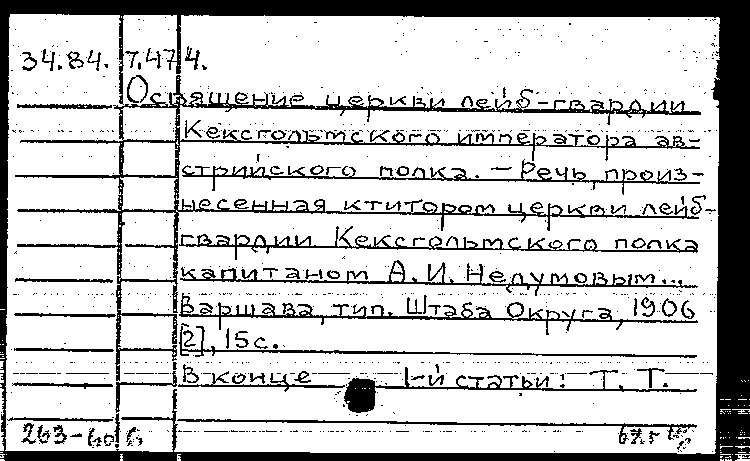 34.84.7.474.
Освящение церкви лейб-гвардии
Кексгольмского императора ав-
стрийского полка. — Речь, произ-
несенная ктитором церкви лейб-
гвардии Кексгольмского полка
капитаном А. И. Недумовым...
Варшава, тип. Штаба Округа, 1906
[2], 15 с.
В конце 1-й статьи: Т. Т.
263-60 б